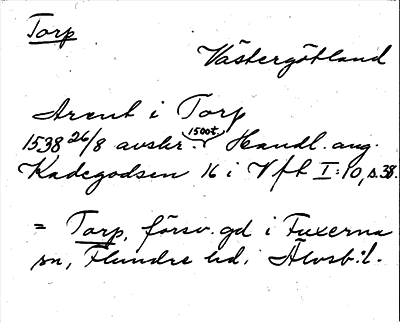 Torp
Västergötland
Arent i Torp
1538 26/8 avskr. (1500t.) Handl. ang.
Kadegodsen 16 i Vft I:10, s. 38.
= Torp, försv. gd i Fuxerna
sn, Flundre hd, Älvsb:l.